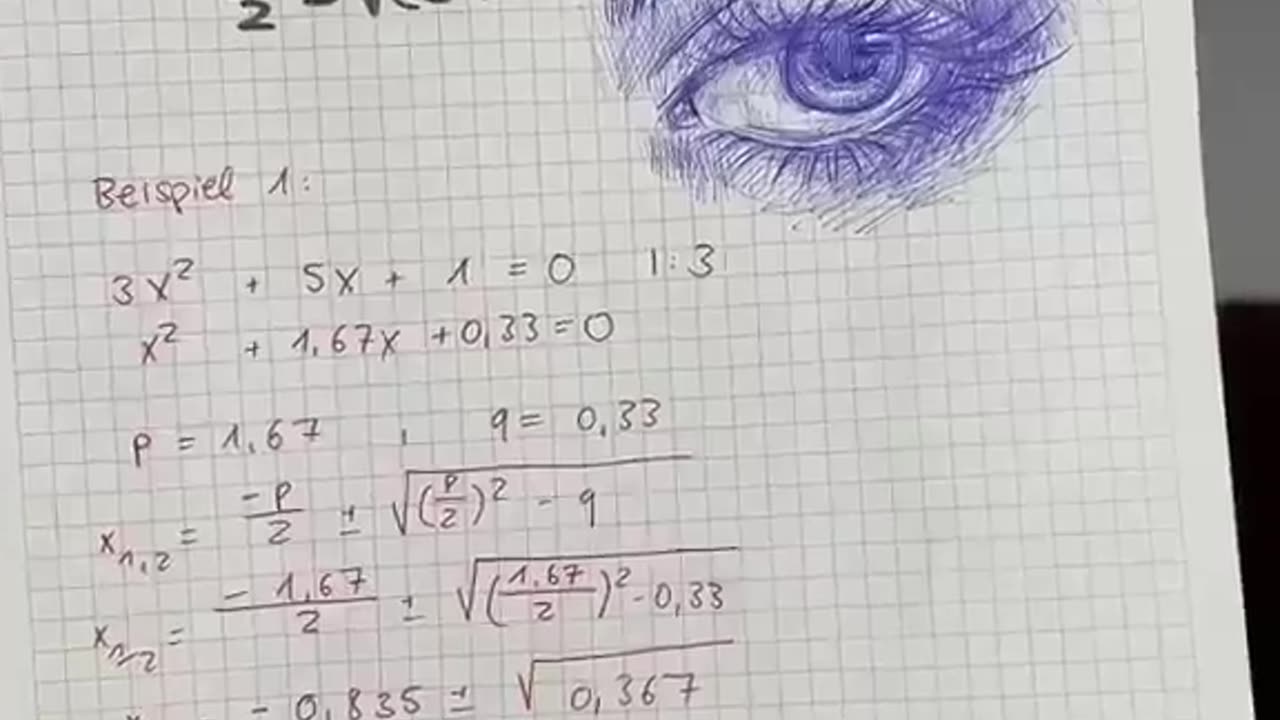 Beispiel 1:
3x² + 5x + 1 = 0 |:3
x² + 1,67x + 0,33 = 0
p = 1,67 , q = 0,33
x₁,₂ = -p/2 ± √((p/2)² - q)
x₁/₂ = -1,67/2 ± √((1,67/2)² - 0,33)
- 0,835 ± √0,367